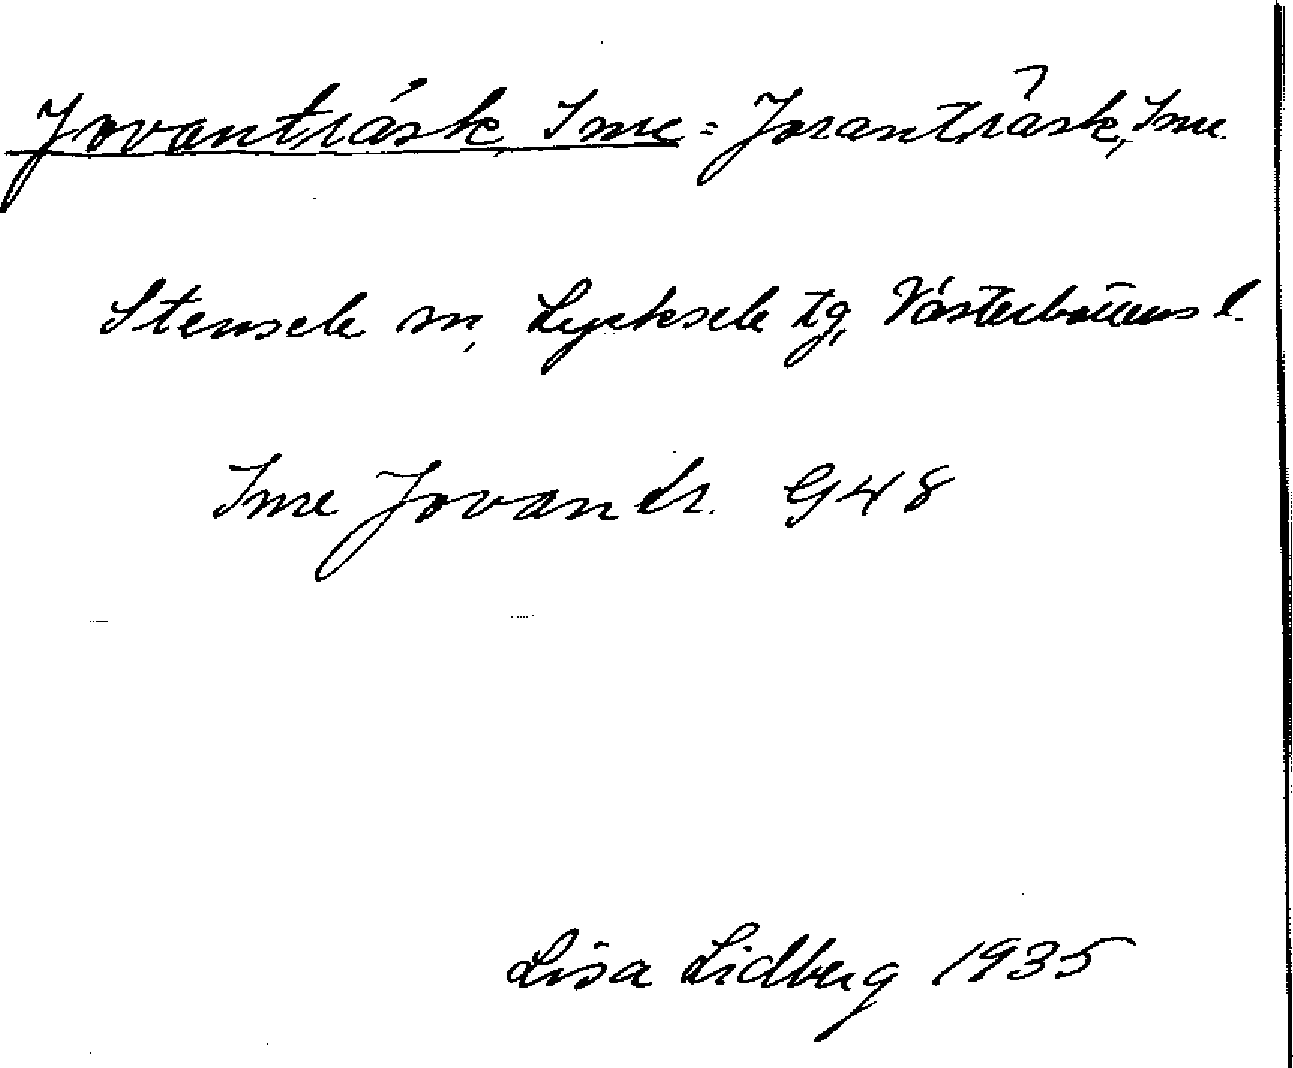 Jovanträsk, Inre = Joranträsk, Inre
Stensele sn, Lycksele tg, Västerbottens l.
Inre Jovantr. G48
Lisa Lidberg 1935